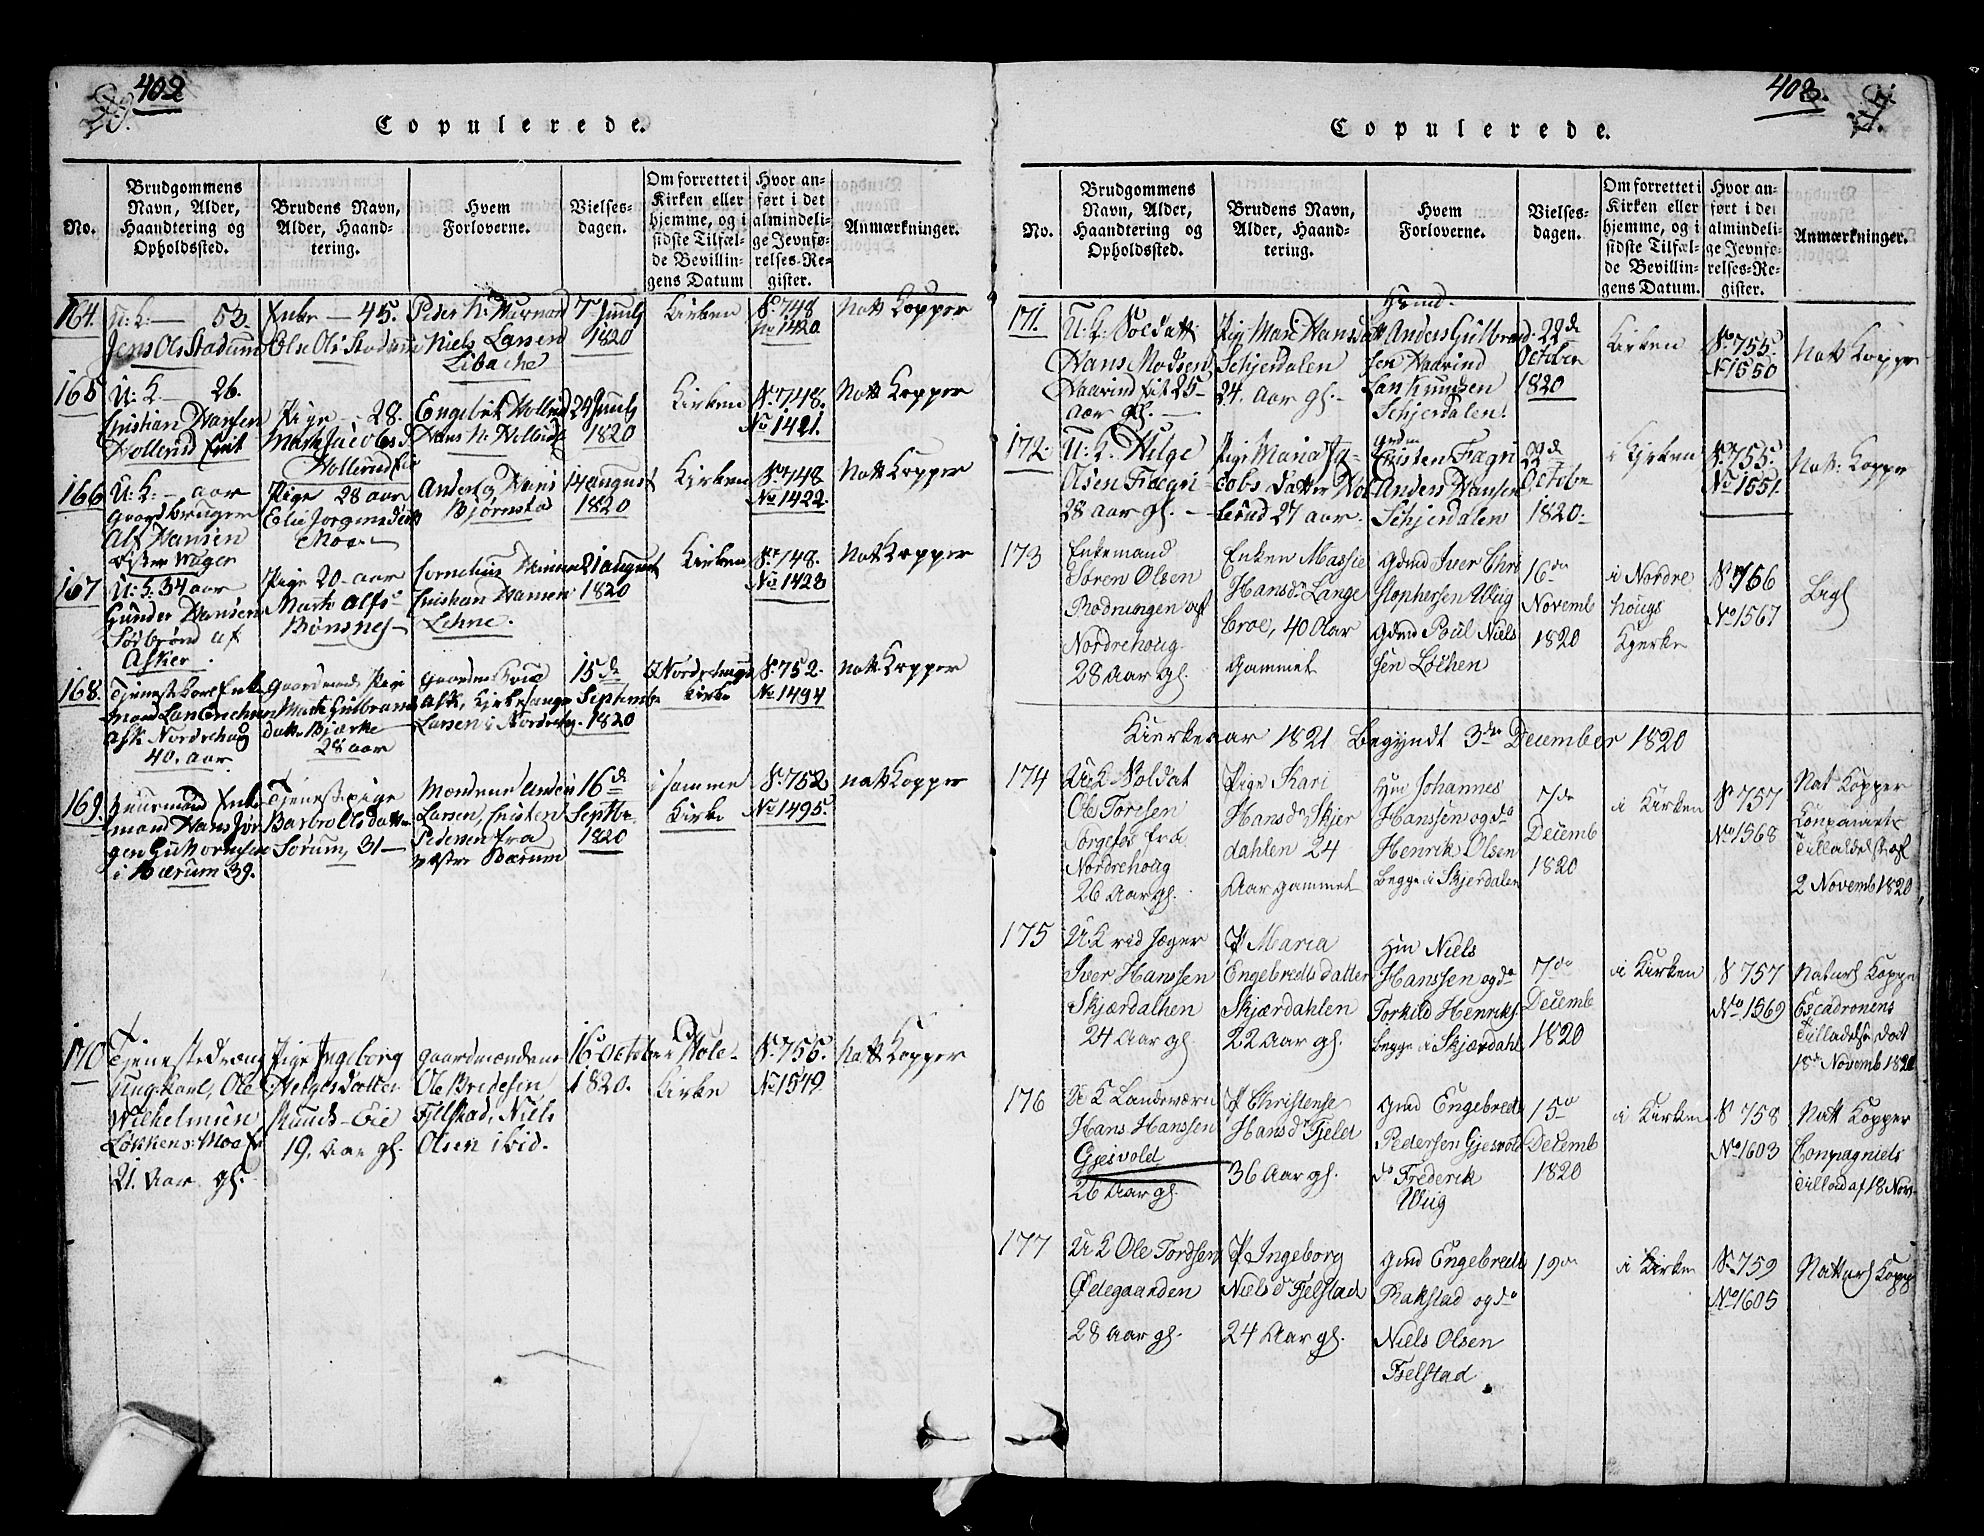 402
Copulerede.
No.
Brudgommens Navn, Alder, Haandtering og Opholdssted.
Brudens Navn, Alder, Haandtering.
Hvem Forloverne.
Vielsesdagen.
Om forrettet i Kirken eller hjemme, og i sidste Tilfælde Bevillingens Datum
Hvor anført i det almindelige Jevnførelses-Register.
Anmærkninger.
164.
U: K: — 53.
Jens Ols Stadum
Enke — 45.
Else Ols Stadum
Peder N:
Niels Larsen
Libache
7 Juuly
1820
Kirken
S: 748
No 1420
Natt Kopper
165
U: K — 26.
Cristian Hansen
Hollerud Eiet
Pige — 28.
Marte Jacobsd
Hollerud Eie
Engebrik Hollerud
Hans N: Hollerud
29 Juuly
1820
Kirken
S: 748.
No 1421.
Natt Kopper
166
U: K — aar
Gaardbruger
Alf Hansen
Pige 28 aar
Elie Jorgensdatt
Moe —
Anders Hans
Bjørnstad
14 august
1820
Kirken
S: 748
No 1422
Natt Kopper
167
U: S. 34 aar
Gunder Hansen
Asker.
Pige 20 aar
Marte Alfs
Bønsnes —
Cornelius
Cristian Hansen
Lehne.
21 august
1820
Kirken
S: 748.
No 1423
Natt Kopper
168.
Tjeneste Karl Enke
mand Lars Erichsen
Ask Nordrehoug
40. aar
Gaardmands Pige
Marte Gulbrands
datter Bjerke
28 aar
Ask, Kirkesanger
Larsen i Nordrehg.
15de
Septembr
1820
Nordrehougs
Kirke
S: 752.
No 1494
Natt Kopper
169.
Huusmand Enke
mand Hans Jør
gen Guttormsen
i Bærum 39.
Tjenestepige
Barbro Olsdatter
Sørum, 31 —
Mændene Anders
Larsen, Cristen
Pedersen fra
vestre Bærum
16d
Septbr
1820
i samme
Kirke
S: 752
No 1495.
natt Kopper
170
Tjenestedreng
Ung karl, Ole
Wilhelmsen
Løkkens Moe
21. Aar gl.
Pige Ingeborg
Helgesdatter
Skuuds Eie
19. Aar gl.
gaardmændene
Ole Bredesen
Fjelstad, Niels
Olsen ibid.
16 October
1820.
i Hole
Kirke
S: 755.
No 1549
Natt Kopper
403.
Copulerede.
No.
Brudgommens Navn, Alder, Haandtering og Opholdssted.
Brudens Navn, Alder, Haandtering.
Hvem Forloverne.
Vielsesdagen.
Om forrettet i Kirken eller hjemme, og i sidste Tilfælde Bevillingens Datum.
Hvor anført i det almindelige Jevnførelses-Register.
Anmærkninger.
171.
U: K: Soldatt
Hans Madsen
Haarind Eie 25
Aar gl. —
Pige Mari Hansdatt
Schjerdalen
24. Aar gl. —
Anders Gulbrand
sen Haarind
Lars Knudsen
Schjerdalen.
22de
October
1820
Kirken
S: 755.
No 1550
Natt Kopper
172.
U: K. Helge
Olsen Fægri
28 aar gl. —
Pige Maria Ja-
cobs datter Hol
lerud 27 aar.
Cristen Fægri
Anders Hansen
Schjerdalen
22de
Octobr
1820.
i Kjrken
S: 755.
No 1551.
Nat: Kopper
173
Enkemand
Søren Olsen
Rodningen af
Nordrehoug
28 Aar gl.
Enken Massie
Hansdr Lange
broe, 40 Aar
Gammel
Gdmd Iver Chri
stophersen Wiig
Gdmd Poul Niels
sen Løchen
16de
Novemb
1820
i Nordre
hougs
Kjerke
S 756
No 1567
Kierkeaar 1821 Begyndt 3de December 1820
174
U K Soldat
Ole Toresen
Nordrehoug
26 Aar gl.
Pige Kari
Hansdr Skjer
dahlen 24
Aar gammel
Hm Johannes
Hanssen og do
Henrik Olsen
begge i Skjerdalen
7de
Decemb
1820
i Kirken
S 757
No 1568
Nat Kopper
Companiets
Tilladelse af
2 Novemb 1820
175
U K rid Jæger
Iver Hanssen
Skjærdalhen
24 Aar gl.
P Maria
Engebredtsdatter
Skjærdahlen
22 Aar gl.
Hm Niels
Hanssen og do
Torkild Henriks
begge i Skjærdahl
7de
Decemb
1820
i Kirken
S 757
No 1569
Naturl Kopper
Escadronens
Tilladelse dat
18de Novemb 1820
176
U K Landeværn
Hans Hanssen
Gjesvold
26 Aar gl.
P Christense
Hansdr Fjeld
36 Aar gl.
Gmd Engebredt
Pedersen Gjesvold
do Frederik
Wiig
15de
Decemb
1820
i Kirken
S 758
No 1603
Natt Kopper
Compagniets
Tillad af 18 Nov
177
U K Ole Tordsen
Ødegaarden
28 Aar gl.
P Ingeborg
Nielsdr Fjelstad
24 Aar gl.
Gmd Engebredt
Rakstad og do
Niels Olsen
Fjelstad
19de
i Kirken
S: 759
No 1605
Natturl Kopp